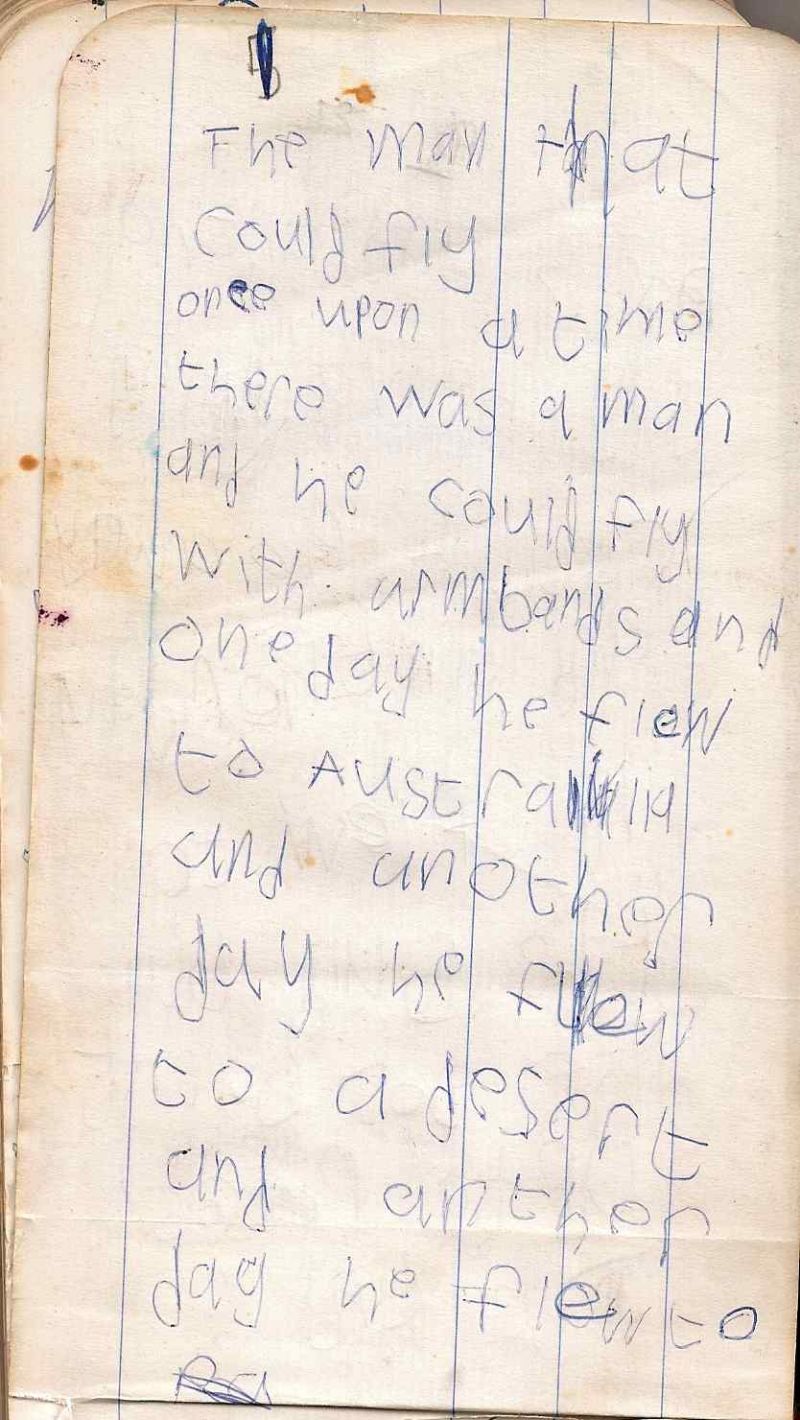 The man that
could fly
once upon a time
there was a man
and he could fly
with armbands and
one day he flew
to Australia
and another
day he flew
to a desert
and anther
day he flew to